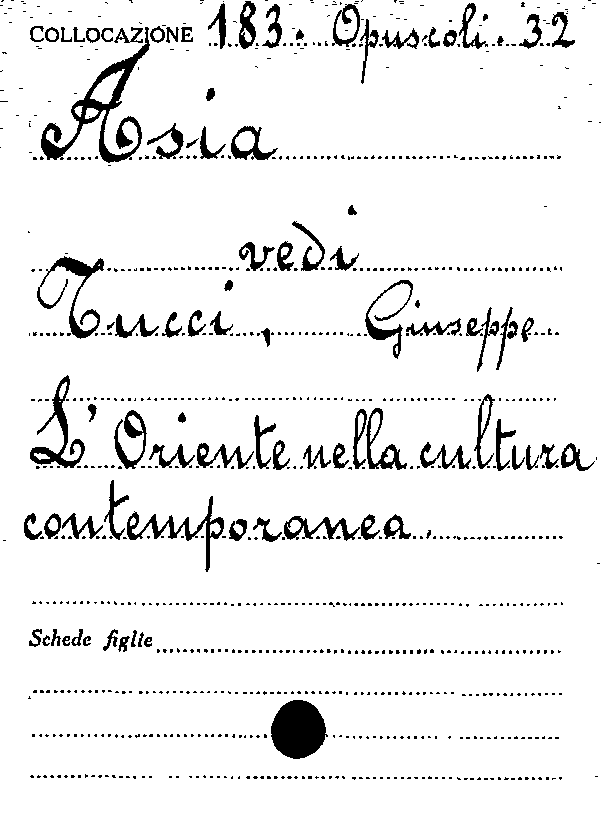 COLLOCAZIONE 183. Opuscoli. 32
Asia
vedi
Tucci, Giuseppe.
L'Oriente nella cultura
contemporanea.
Schede figlie